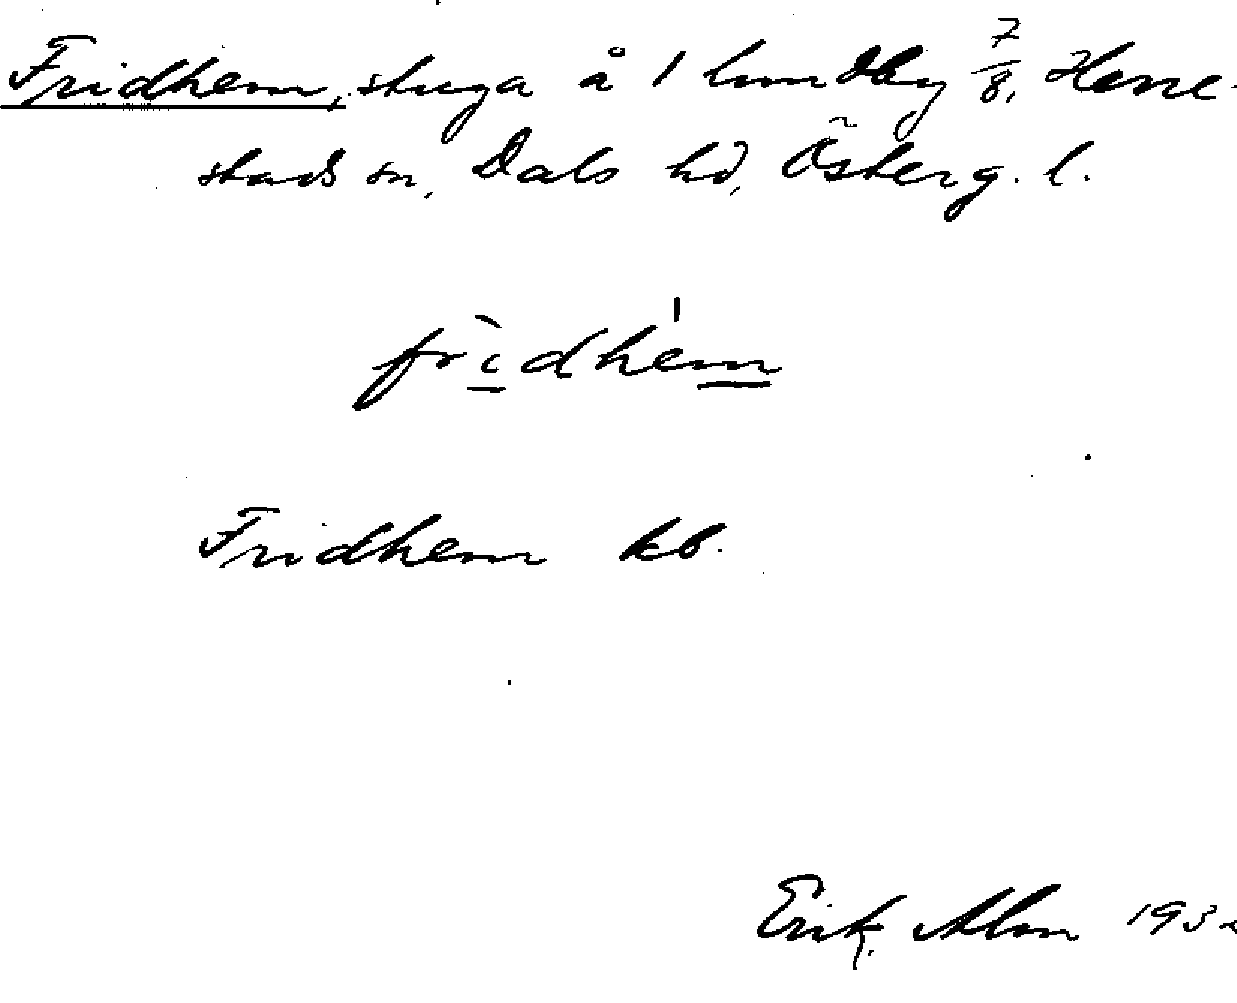 Fridhem, stuga å 1 lundby 7/8, Herre-
stads sn, Dals hd, Österg. l.
frìdhém
Fridhem kb.
Erik Alm 1932